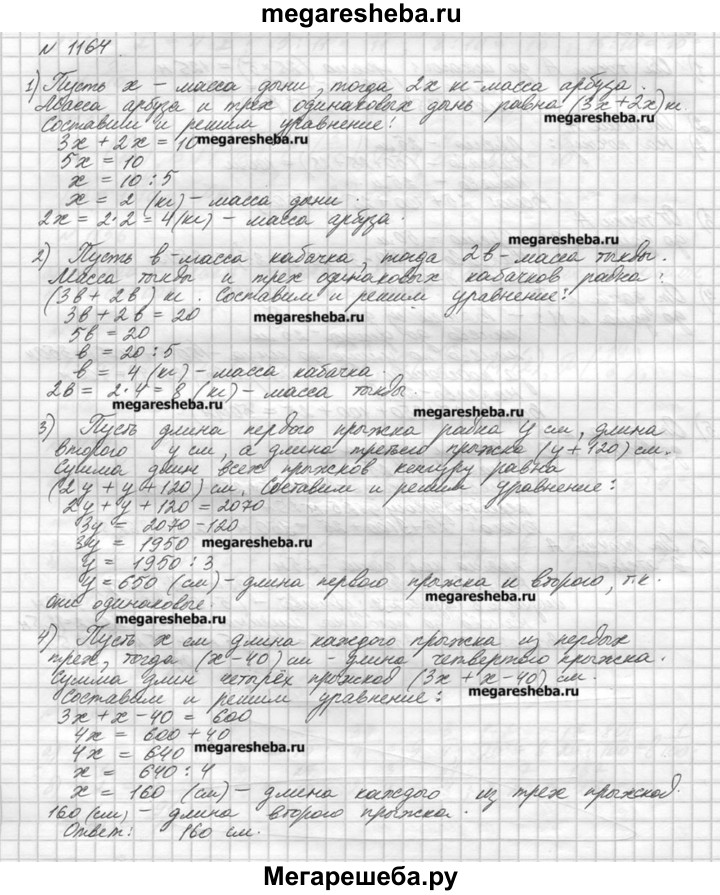 megaresheba.ru
№ 1164.
1) Пусть x – масса дыни, тогда 2x кг – масса арбуза.
Масса арбуза и трех одинаковых дынь равна (3x+2x) кг.
megaresheba.ru
Составим и решим уравнение:
3x + 2x = 10
megaresheba.ru
5x = 10
x = 10 : 5
x = 2 (кг) – масса дыни.
2x = 2·2 = 4 (кг) – масса арбуза.
megaresheba.ru
2) Пусть в – масса кабачка, тогда 2в – масса тыквы.
Масса тыквы и трех одинаковых кабачков равна:
(3в + 2в) кг. Составим и решим уравнение:
3в + 2в = 20
megaresheba.ru
5в = 20
в = 20 : 5
в = 4 (кг) – масса кабачка.
2в = 2·4 = 8 (кг) – масса тыквы.
megaresheba.ru
megaresheba.ru
3) Пусть длина первого прыжка равна y см, длина
второго y см, а длина третьего прыжка (y+120) см.
Сумма длин всех прыжков кенгуру равна
(2y + y + 120) см. Составим и решим уравнение:
2y + y + 120 = 2070
3y = 2070 – 120
3y = 1950
megaresheba.ru
y = 1950 : 3
y = 650 (см) – длина первого прыжка и второго, т.к.
megaresheba.ru
они одинаковые.
megaresheba.ru
4) Пусть x см длина каждого прыжка из первых
трех, тогда (x – 40) см – длина четвертого прыжка.
Сумма длин четырёх прыжков (3x + x – 40) см.
Составим и решим уравнение:
megaresheba.ru
3x + x – 40 = 600
4x = 600 + 40
4x = 640
megaresheba.ru
x = 640 : 4
x = 160 (см) – длина каждого из трех прыжков.
160 (см) – длина второго прыжка.
Ответ: 160 см.
Мегарешеба.ру